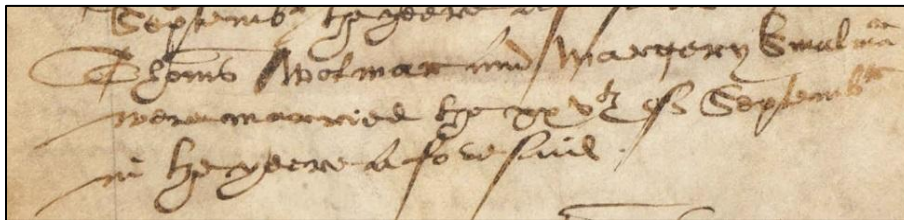 Septembr the yeere a
Thoms Wolmar and Margery Smalmā
were married the xxvth of Septembr
in the yeere aforesaid.